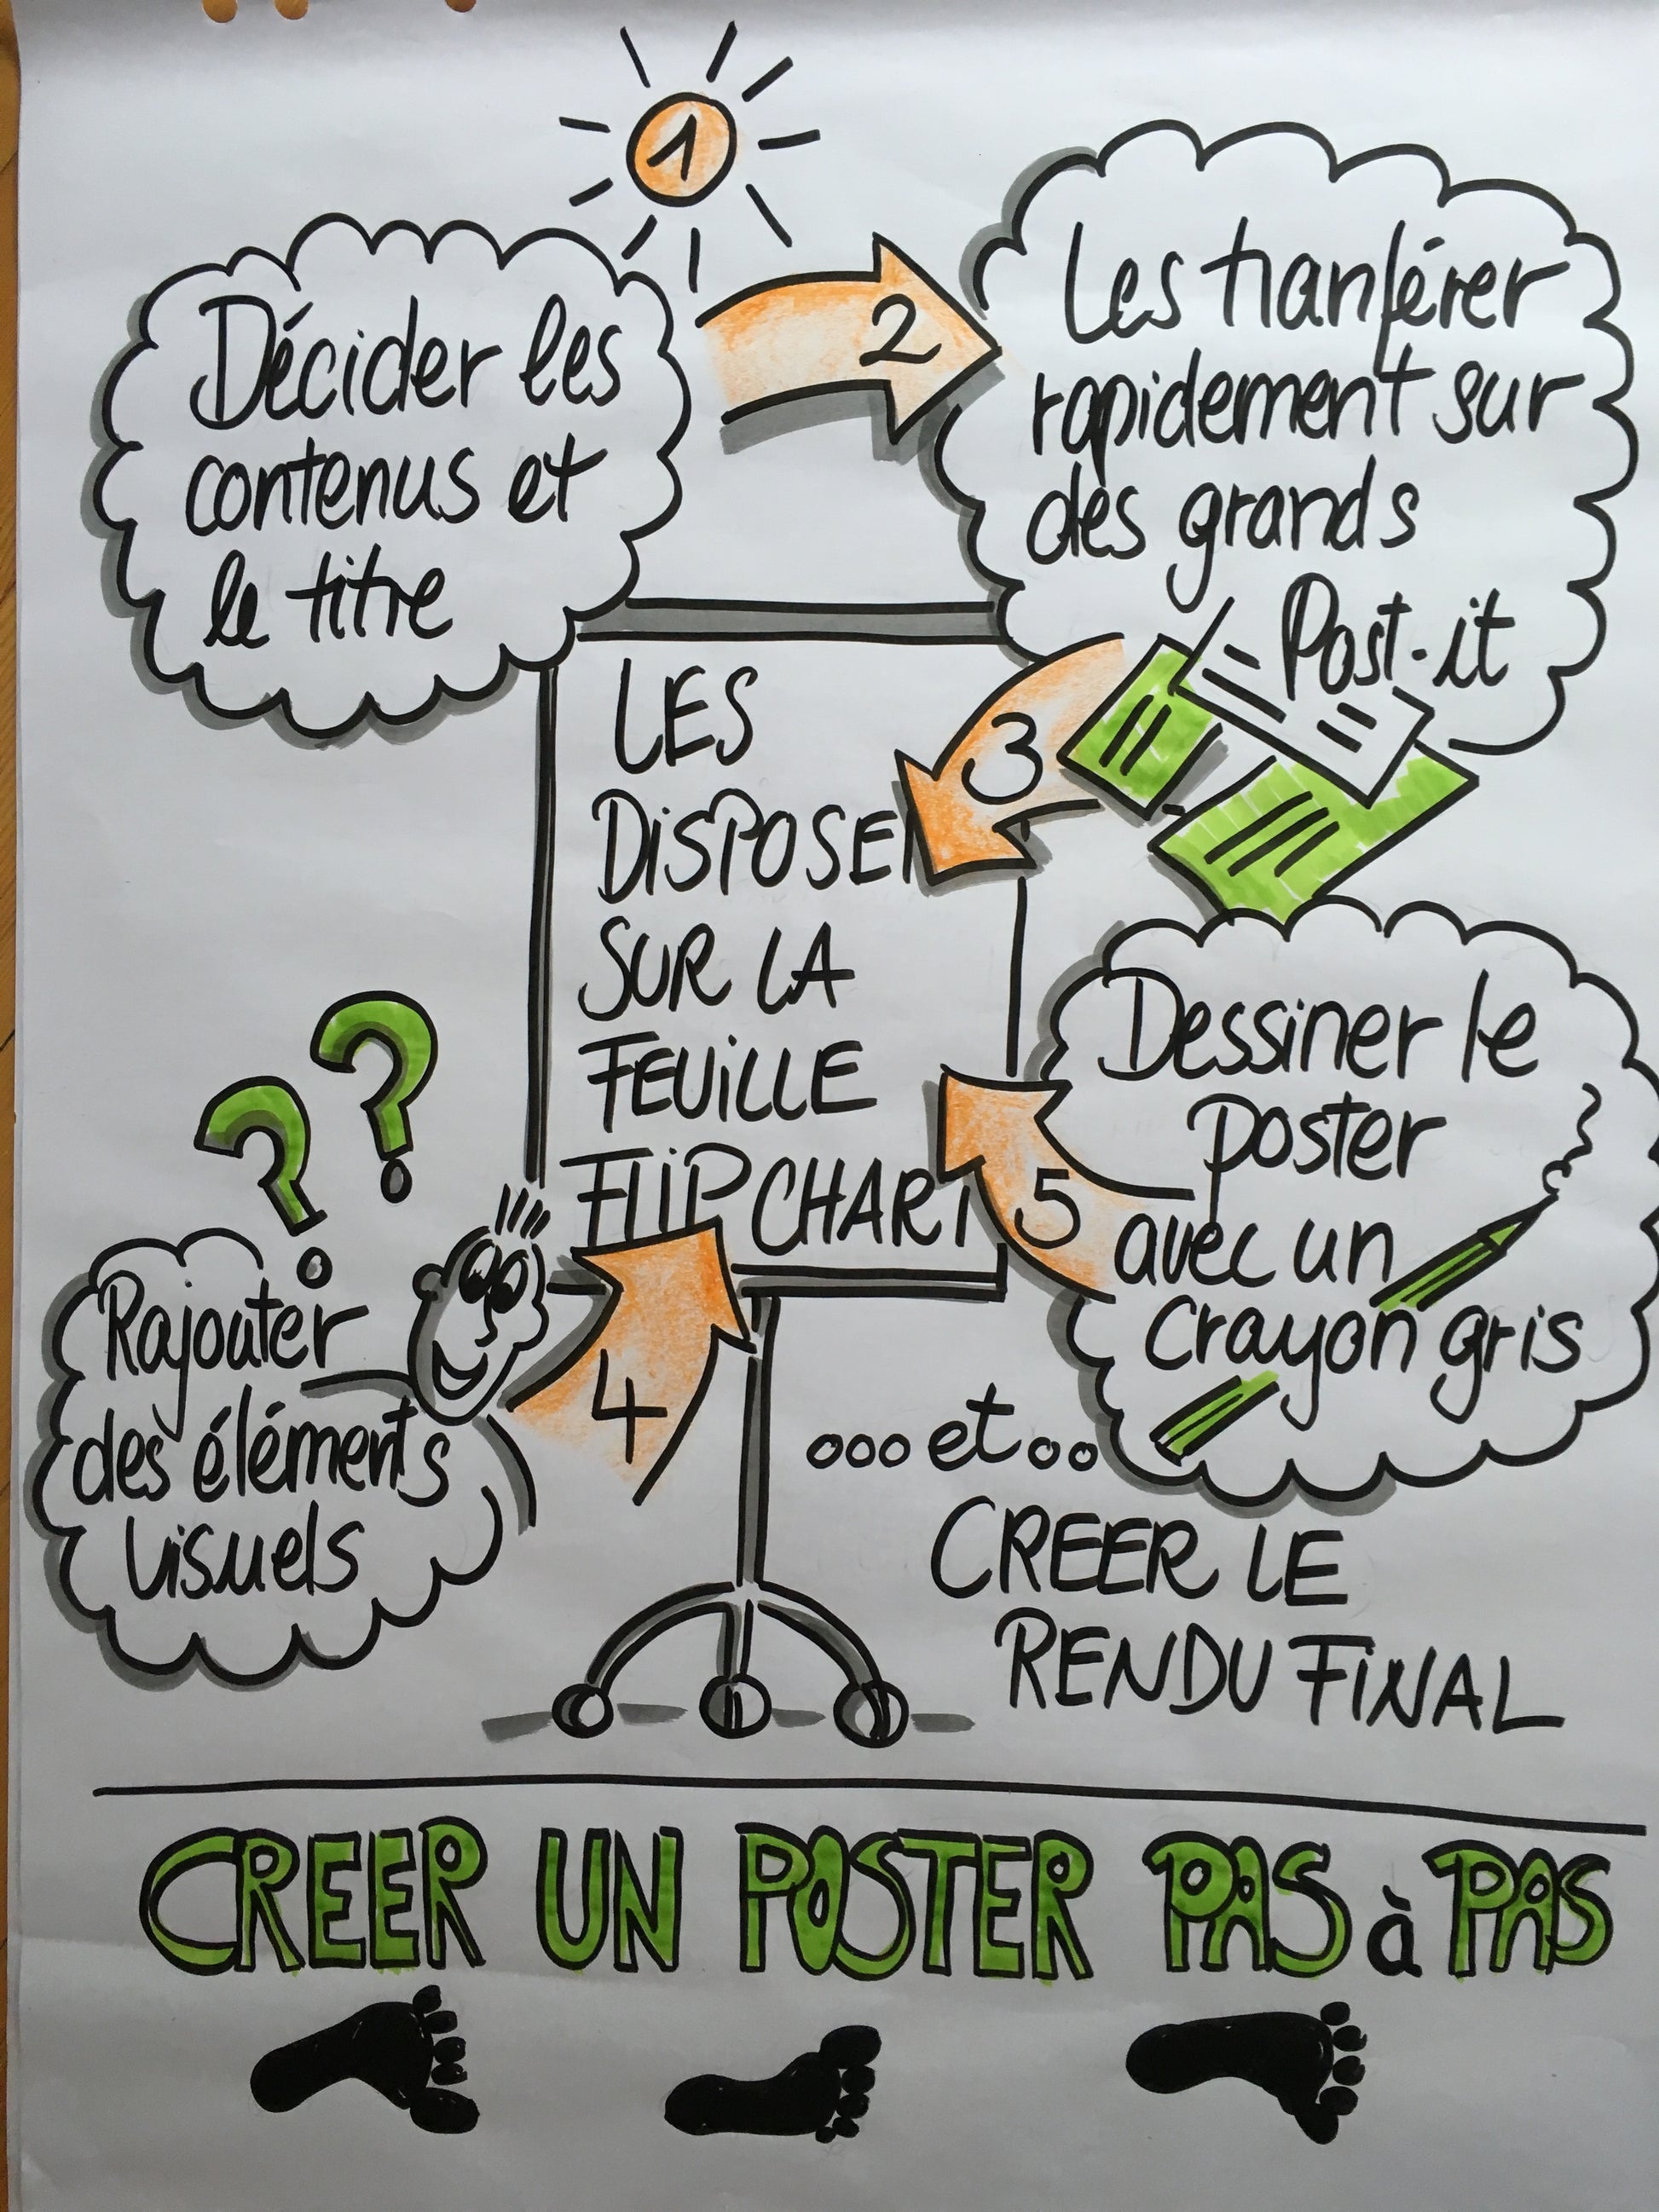 1
Décider les
contenus et
le titre
2
Les tranférer
rapidement sur
des grands
Post-it
3
LES
DiSPOSER
SUR LA
FEUiLLE
FLiP CHART
4
Rajouter
des éléments
visuels
??
5
Dessiner le
poster
avec un
crayon gris
...et..
CREER LE
RENDU FiNAL
CREER UN POSTER PAS à PAS